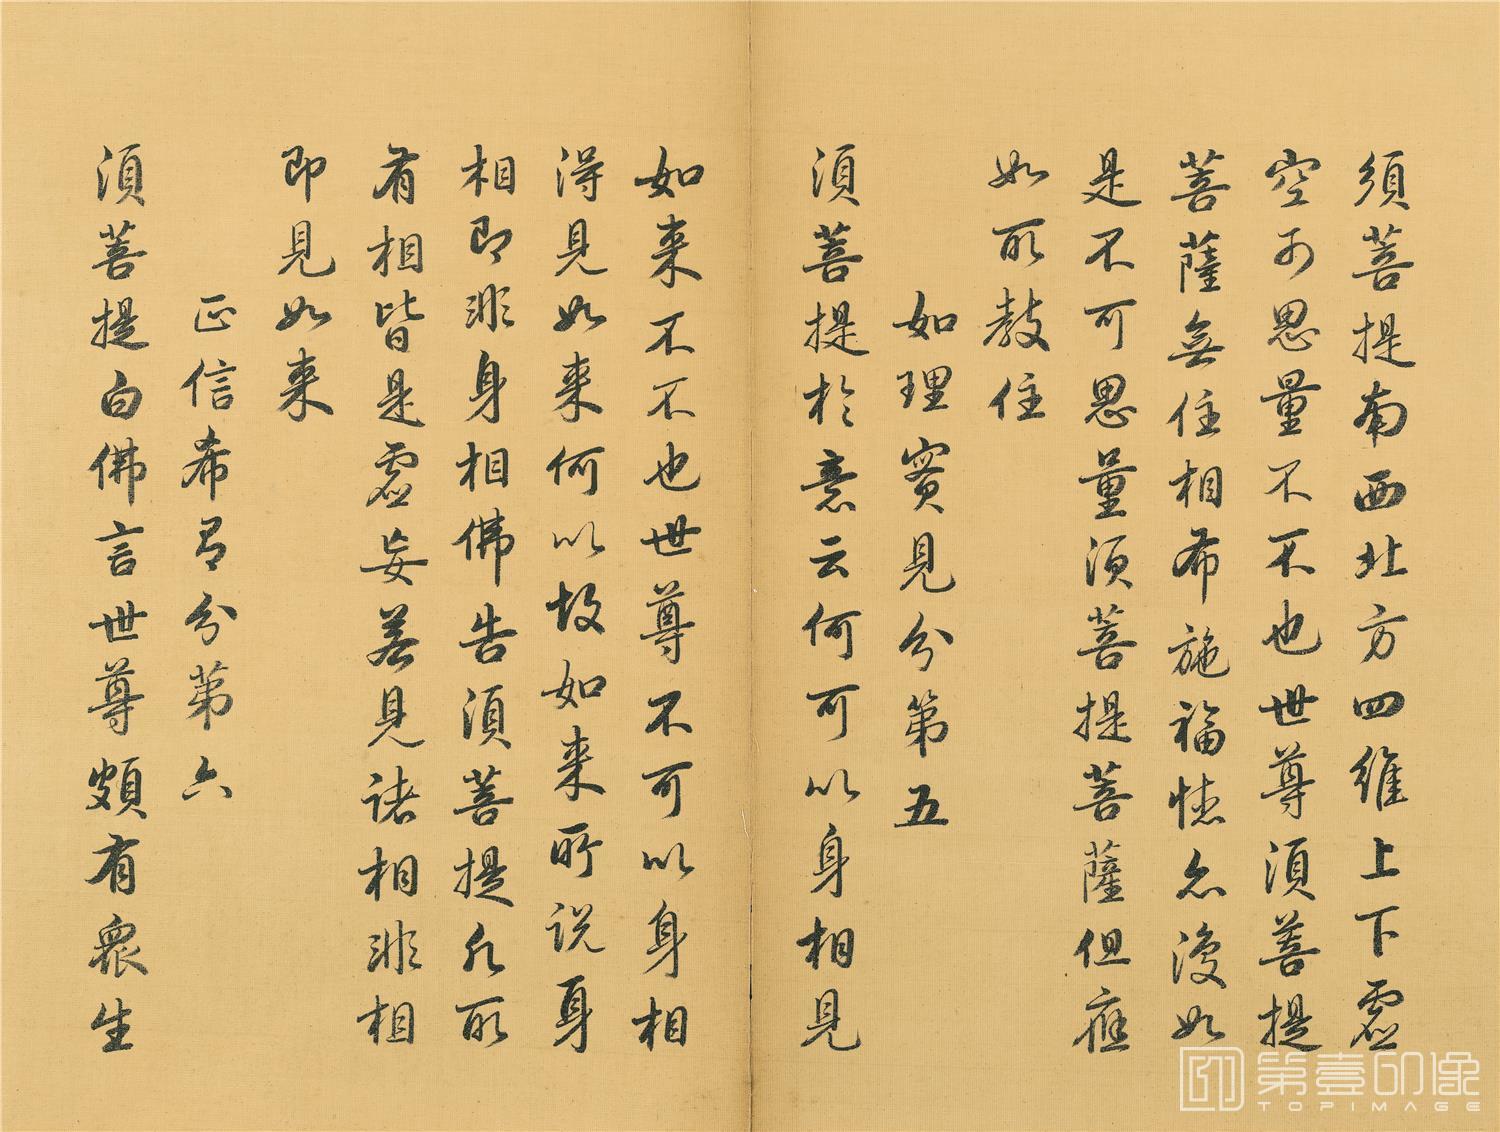 須菩提南西北方四維上下虛
空可思量不不也世尊須菩提
菩薩無住相布施福德亦復如
是不可思量須菩提菩薩但應
如所教住
如理實見分第五
須菩提於意云何可以身相見
如來不不也世尊不可以身相
得見如來何以故如來所說身
相即非身相佛告須菩提凡所
有相皆是虛妄若見諸相非相
即見如來
正信希有分第六
須菩提白佛言世尊頗有眾生
第壹印像
TOPIMAGE